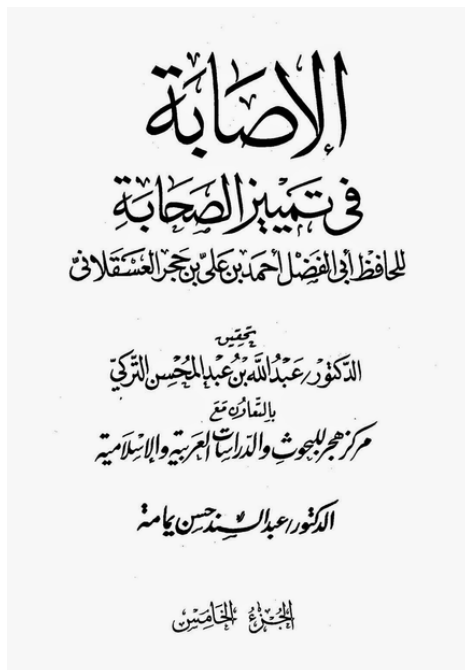 الإصابة
في تمييز الصحابة
للحافظ أبي الفضل أحمد بن علي بن حجر العسقلاني
تحقيق
الدكتور/ عبد الله بن عبد المحسن التركي
بالتعاون مع
مركز هجر للبحوث والدراسات العربية والإسلامية
الدكتور/ عبد السند حسن يمامة
الجزء الخامس